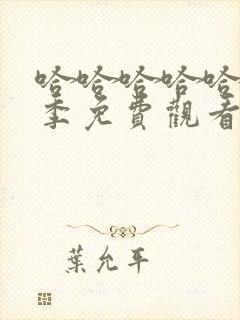 哈哈哈哈哈
季免費觀看
葉允平